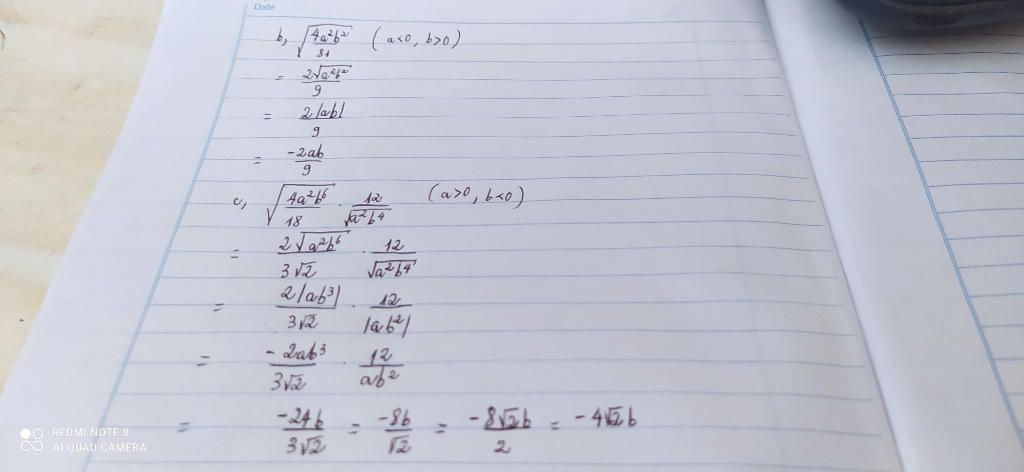 Date
b, √(4a²b²/81) (a<0, b>0)
= 2√(a²b²)/9
= 2|ab|/9
= -2ab/9
c, √(4a²b⁶/18) · 12/√(a²b⁴) (a>0, b<0)
= 2√(a²b⁶)/3√2 · 12/√(a²b⁴)
= 2|ab³|/3√2 · 12/|ab²|
= -2ab³/3√2 · 12/ab²
= -24b/3√2 = -8b/√2 = -8√2b/2 = -4√2b
REDMI NOTE 8
AI QUAD CAMERA